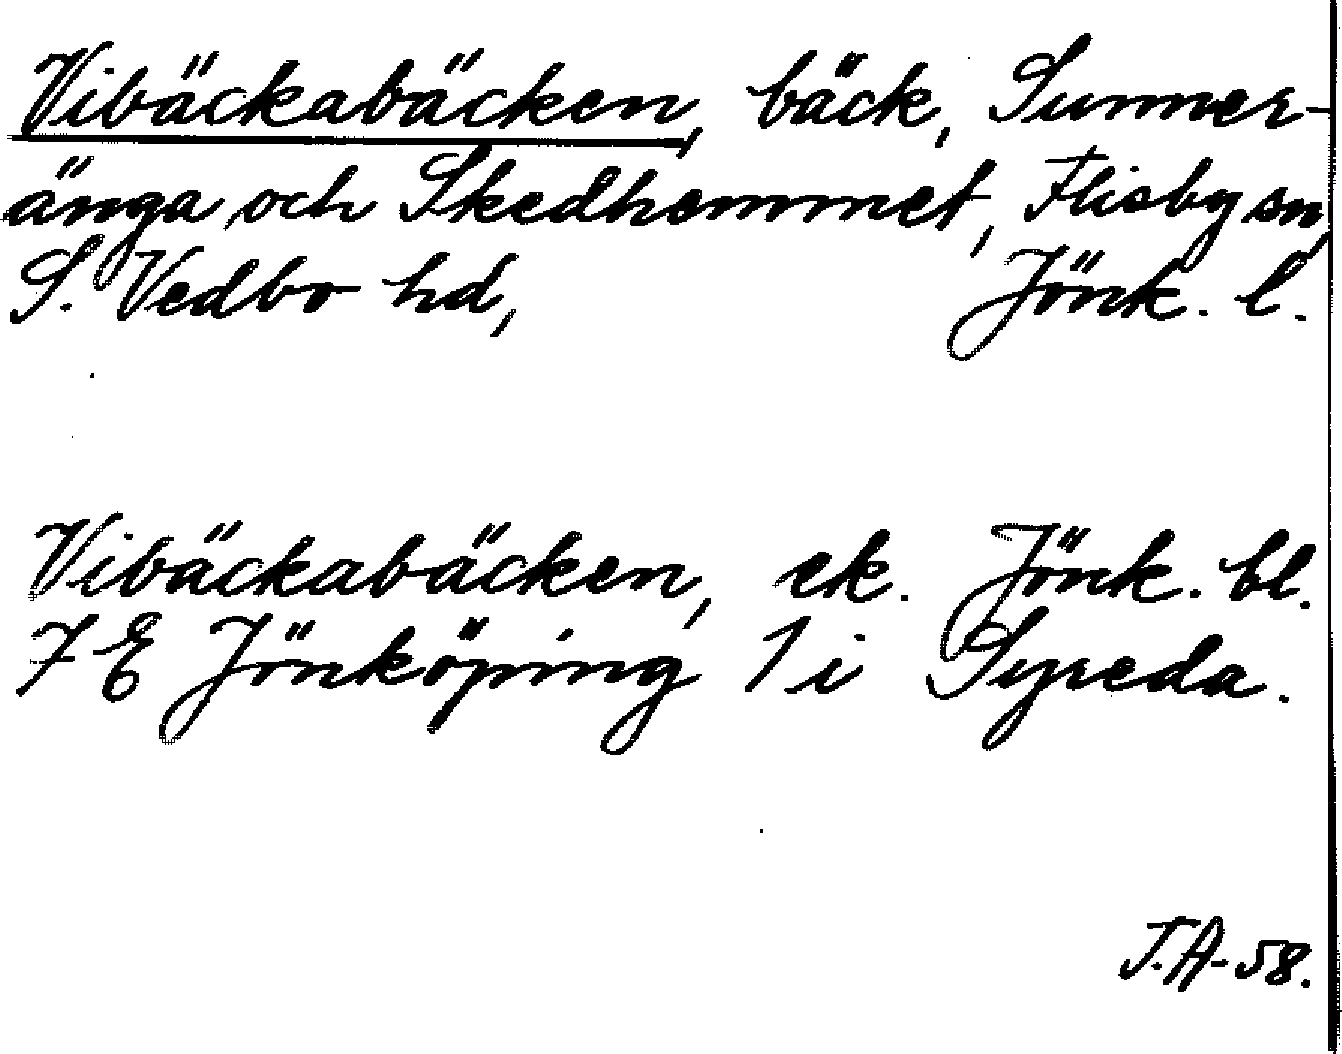 Vibäckabäcken, bäck, Sunner-
änga och Skedhemmet, Flisby sn,
S. Vedbo hd, Jönk. l.
Vibäckabäcken, ek. Jönk. bl.
7 E Jönköping 1 i Syreda.
T.A-58.